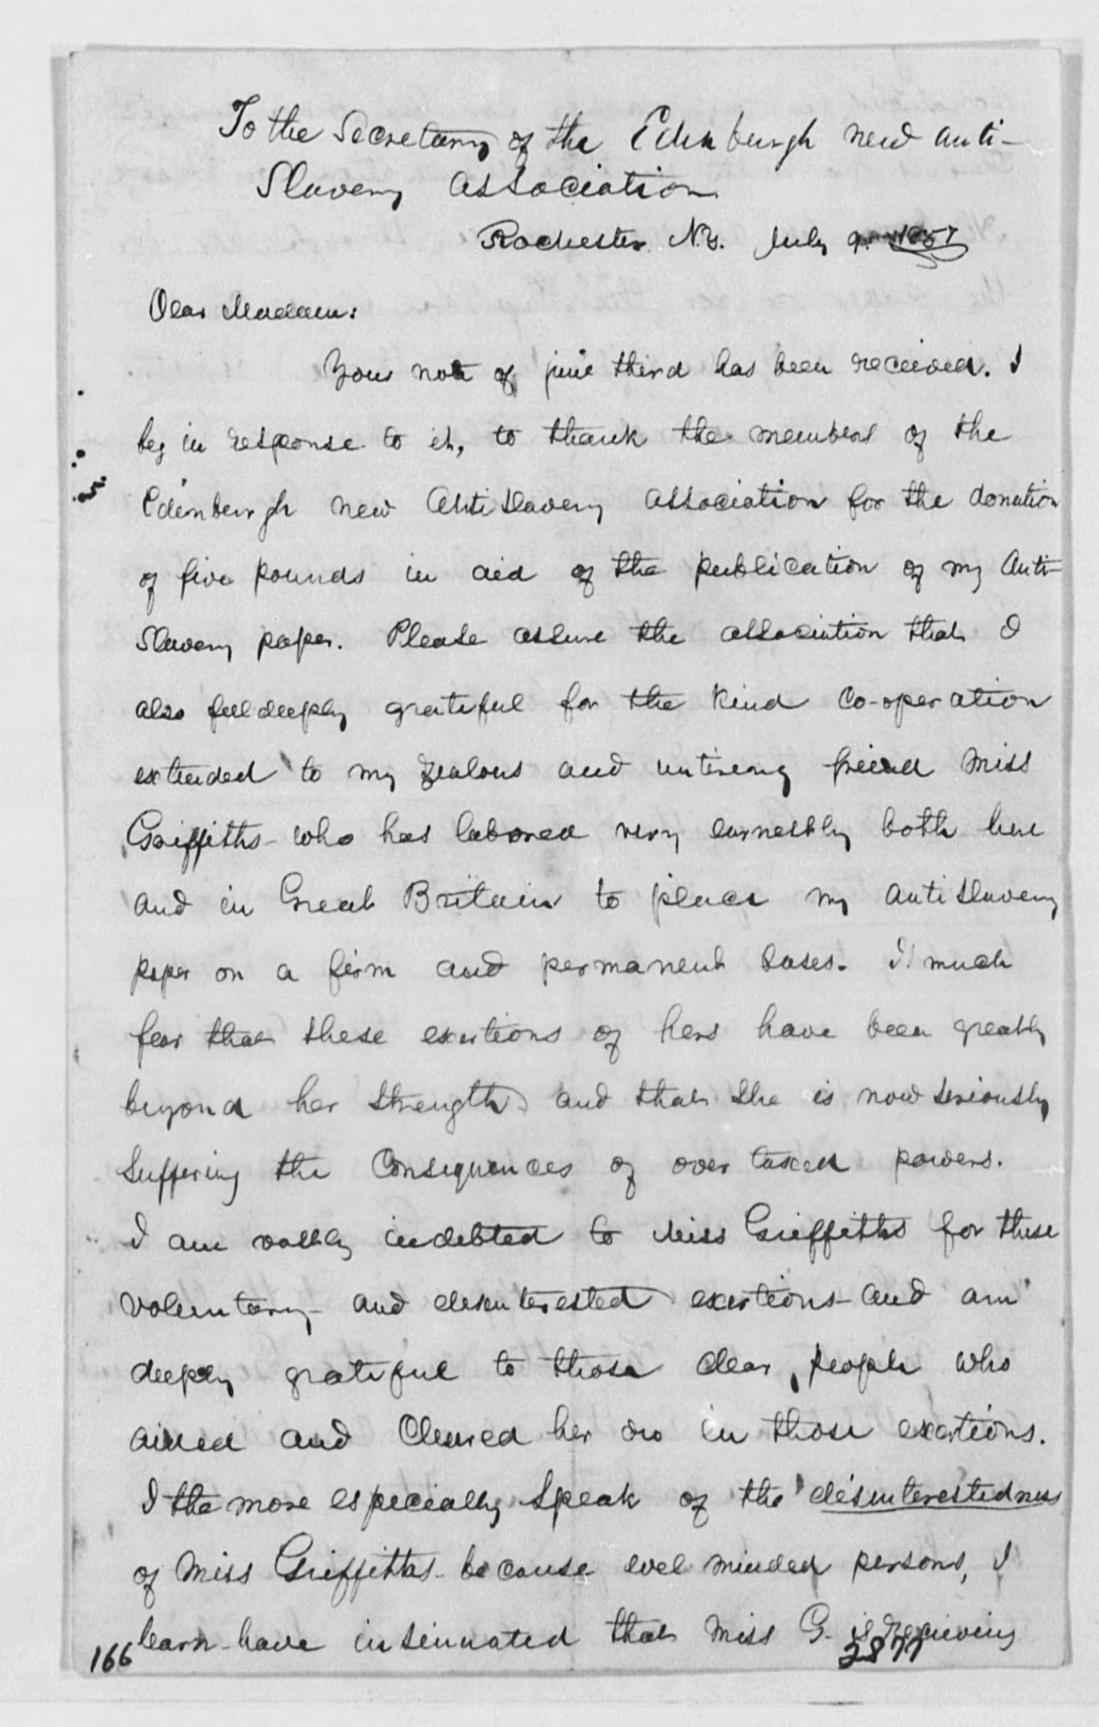 To the Secretary of the Edinburgh new anti-
Slavery Association
Rochester. N.Y. July 9. 1857
Dear Madam:
Your note of june third has been received. I
beg in response to it, to thank the members of the
Edinburgh new Anti Slavery Association for the donation
of five pounds in aid of the publication of my Anti
Slavery paper. Please assure the association that I
also feel deeply grateful for the kind co-operation
extended to my zealous and untireing friend Miss
Griffiths who has labored very earnestly both here
and in Great Britain to place my anti slavery
paper on a firm and permanent bases. I much
fear that these exertions of hers have been greatly
beyond her strength and that she is now seriously
suffering the consequences of over taxed powers.
I am vastly indebted to Miss Griffiths for these
voluntary and desinterested exertions and am
deeply grateful to those dear people who
aided and cheered her on in those exertions.
I the more especially speak of the desinterestedness
of Miss Griffiths because evel minded persons, I
learn have insinuated that Miss G. is receiving
166